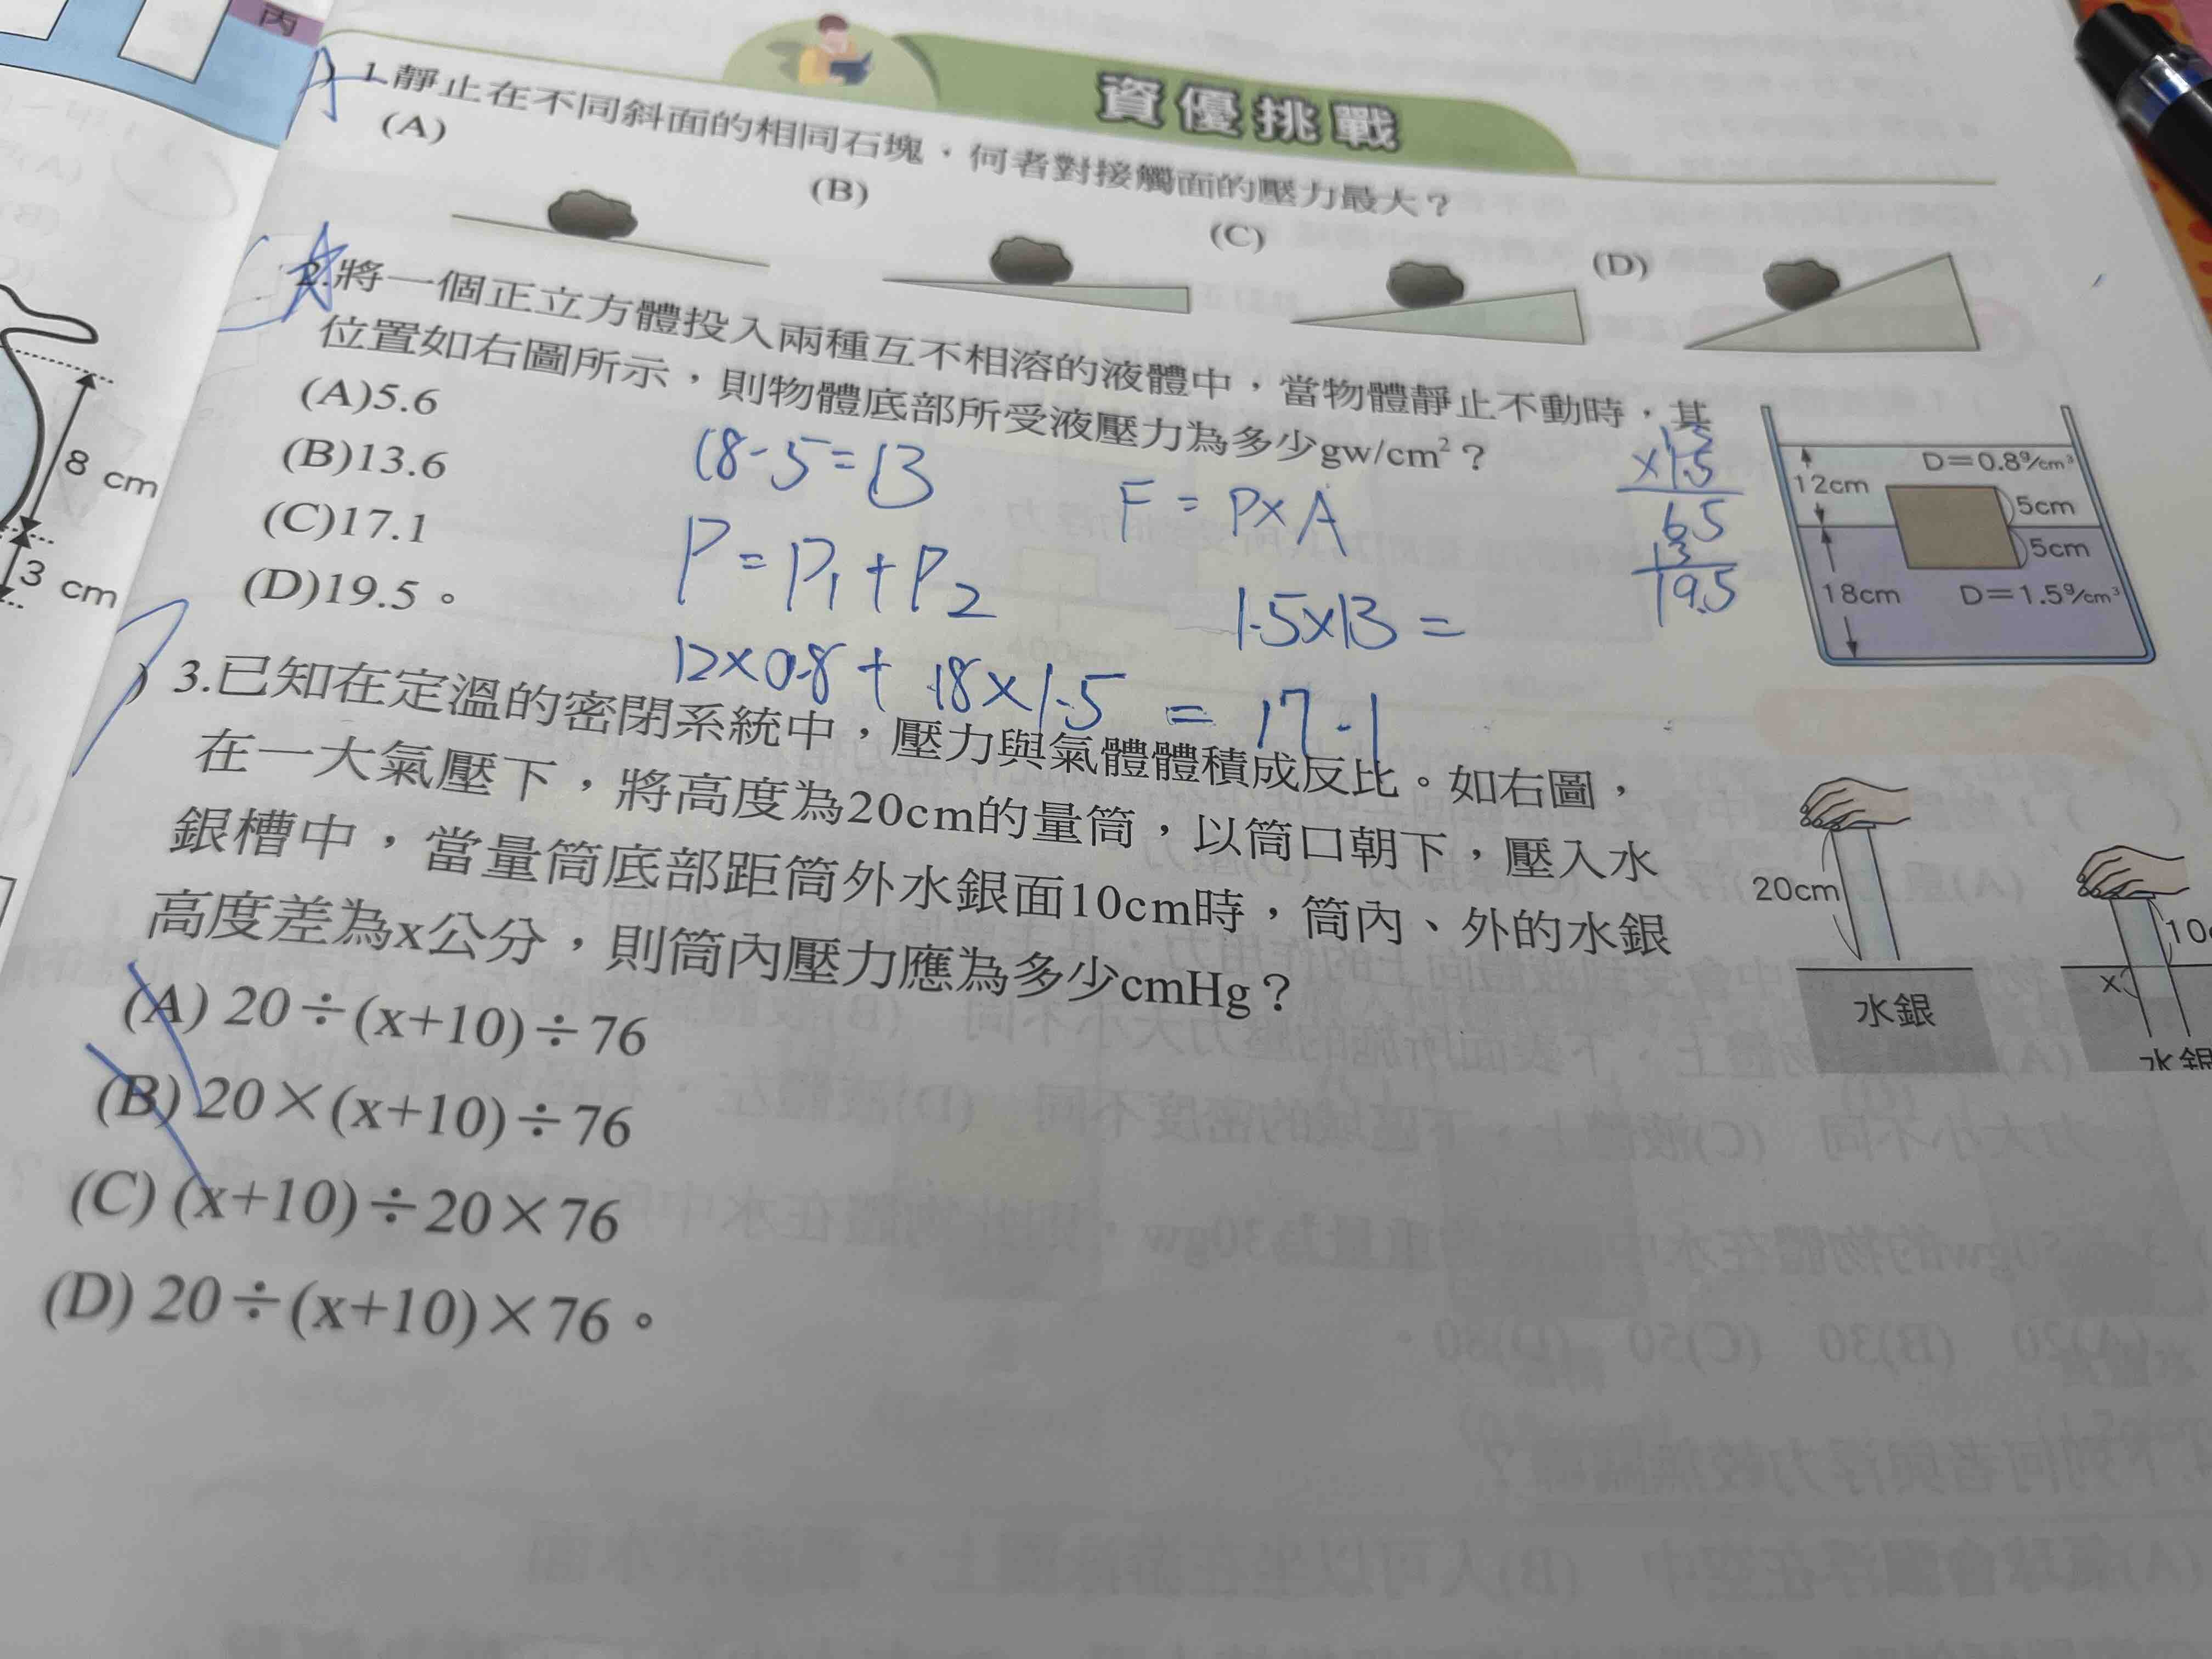 丙
資優挑戰
1.靜止在不同斜面的相同石塊，何者對接觸面的壓力最大？
(A)
(B)
(C)
(D)
2.將一個正立方體投入兩種互不相溶的液體中，當物體靜止不動時，其
位置如右圖所示，則物體底部所受液壓力為多少gw/cm²？
(A)5.6
(B)13.6
(C)17.1
(D)19.5。
18-5=13
P=P₁+P₂
12×0.8+18×1.5=17.1
F=P×A
1.5×13=
×1.5
65
13
19.5
12cm
D=0.8g/cm³
5cm
5cm
18cm
D=1.5g/cm³
8 cm
3 cm
3.已知在定溫的密閉系統中，壓力與氣體體積成反比。如右圖，
在一大氣壓下，將高度為20cm的量筒，以筒口朝下，壓入水
銀槽中，當量筒底部距筒外水銀面10cm時，筒內、外的水銀
高度差為x公分，則筒內壓力應為多少cmHg？
(A) 20÷(x+10)÷76
(B) 20×(x+10)÷76
(C) (x+10)÷20×76
(D) 20÷(x+10)×76。
20cm
水銀
x
水銀